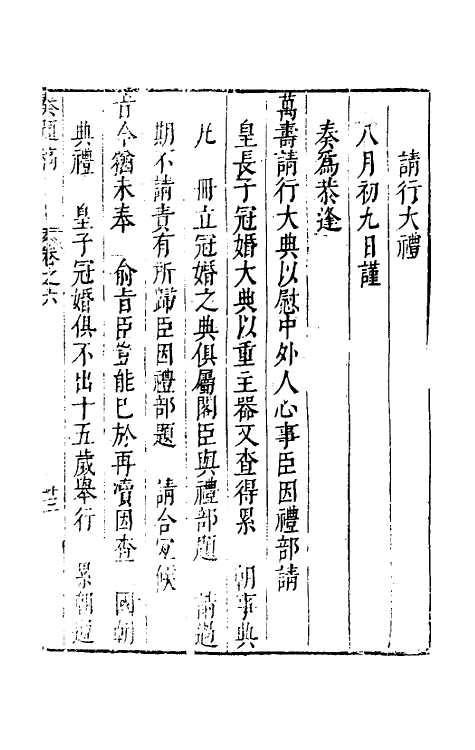 請行大禮
八月初九日謹
奏爲恭逢
萬壽請行大典以慰中外人心事臣因禮部請
皇長子冠婚大典以重主器又查得累　朝事典
凡　冊立冠婚之典俱屬閣臣與禮部題　請過
期不請責有所歸臣因禮部題　請合宜候
旨今猶未奉　俞旨臣豈能已於再瀆因查　國朝
典禮　皇子冠婚俱不出十五歲舉行　累朝遵
奏題稿　卷之六　廿三